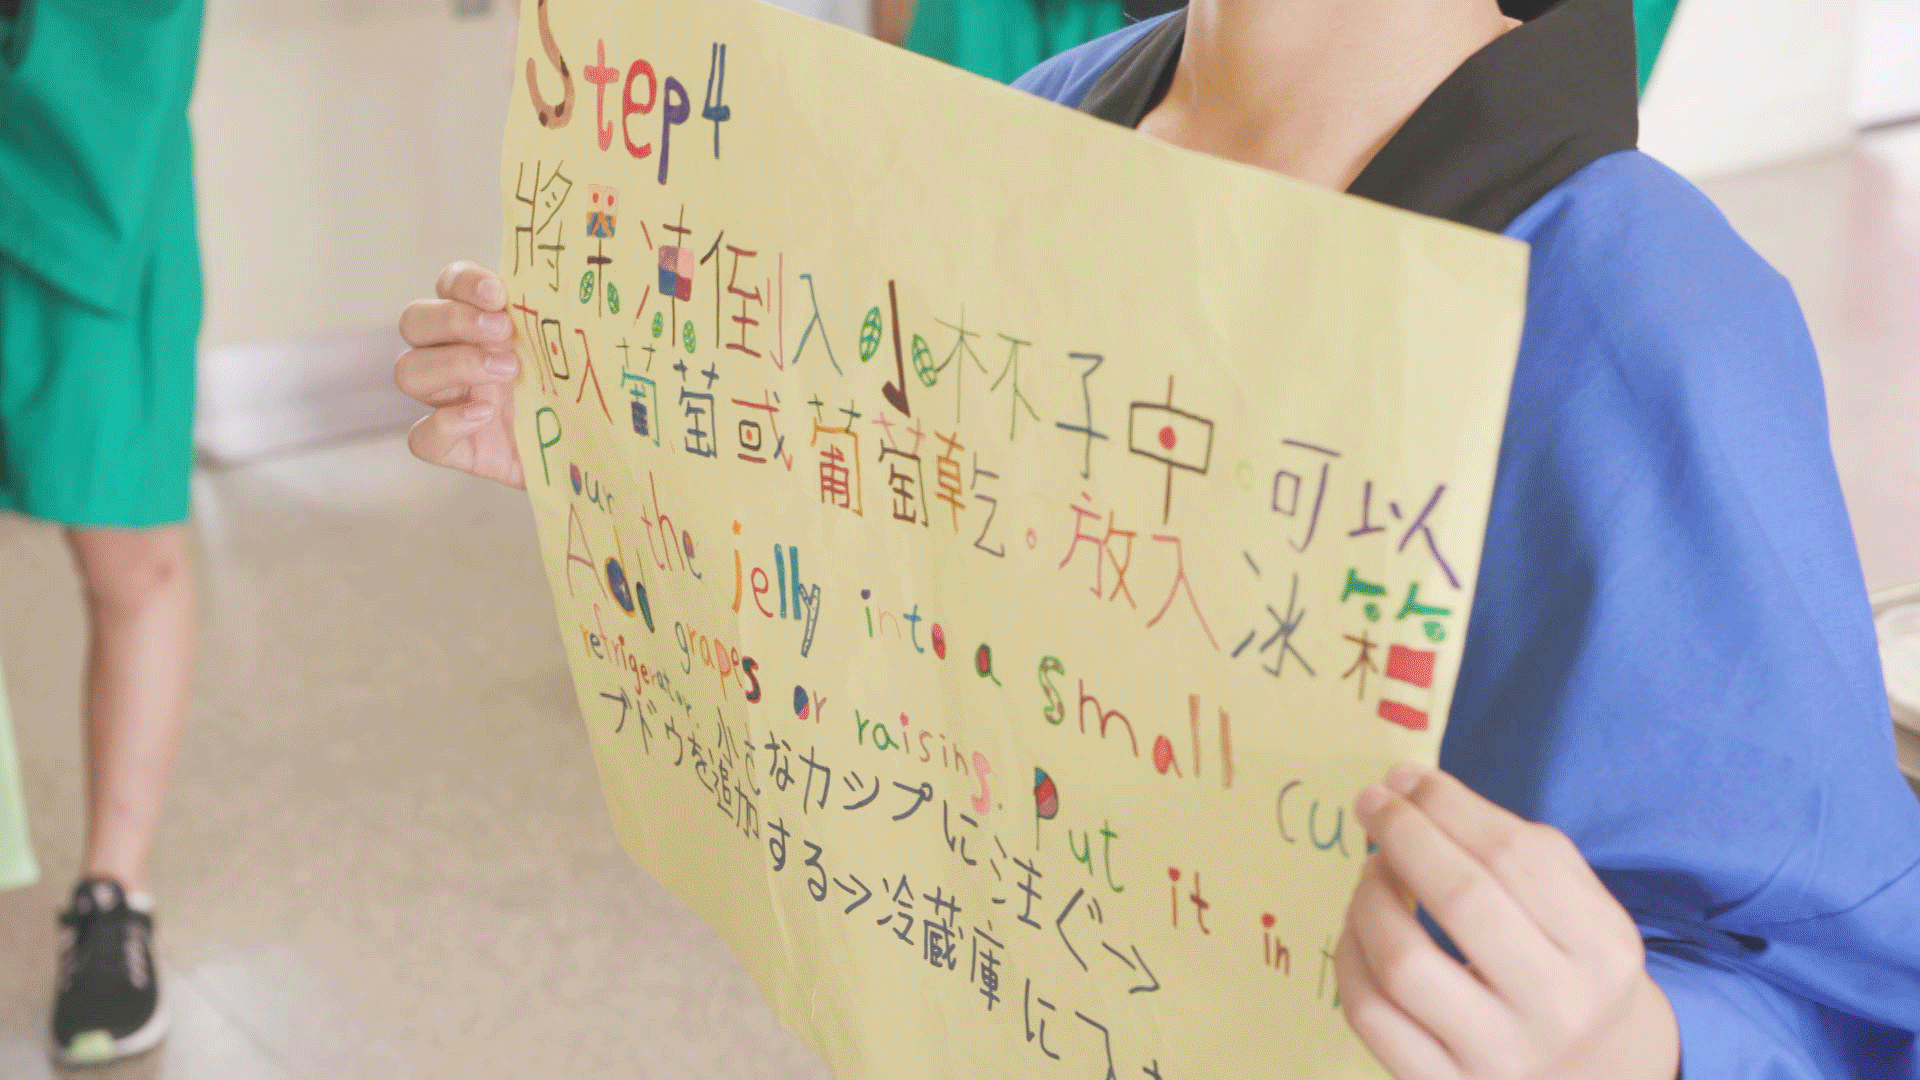 Step4
將果凍倒入小杯子中。可以
加入葡萄或葡萄乾。放入冰箱
Pour the jelly into a small cu
Add grapes or raising. Put it in
refrigerator.
小さなカップに注ぐ→
ブドウを追加する→冷蔵庫に入